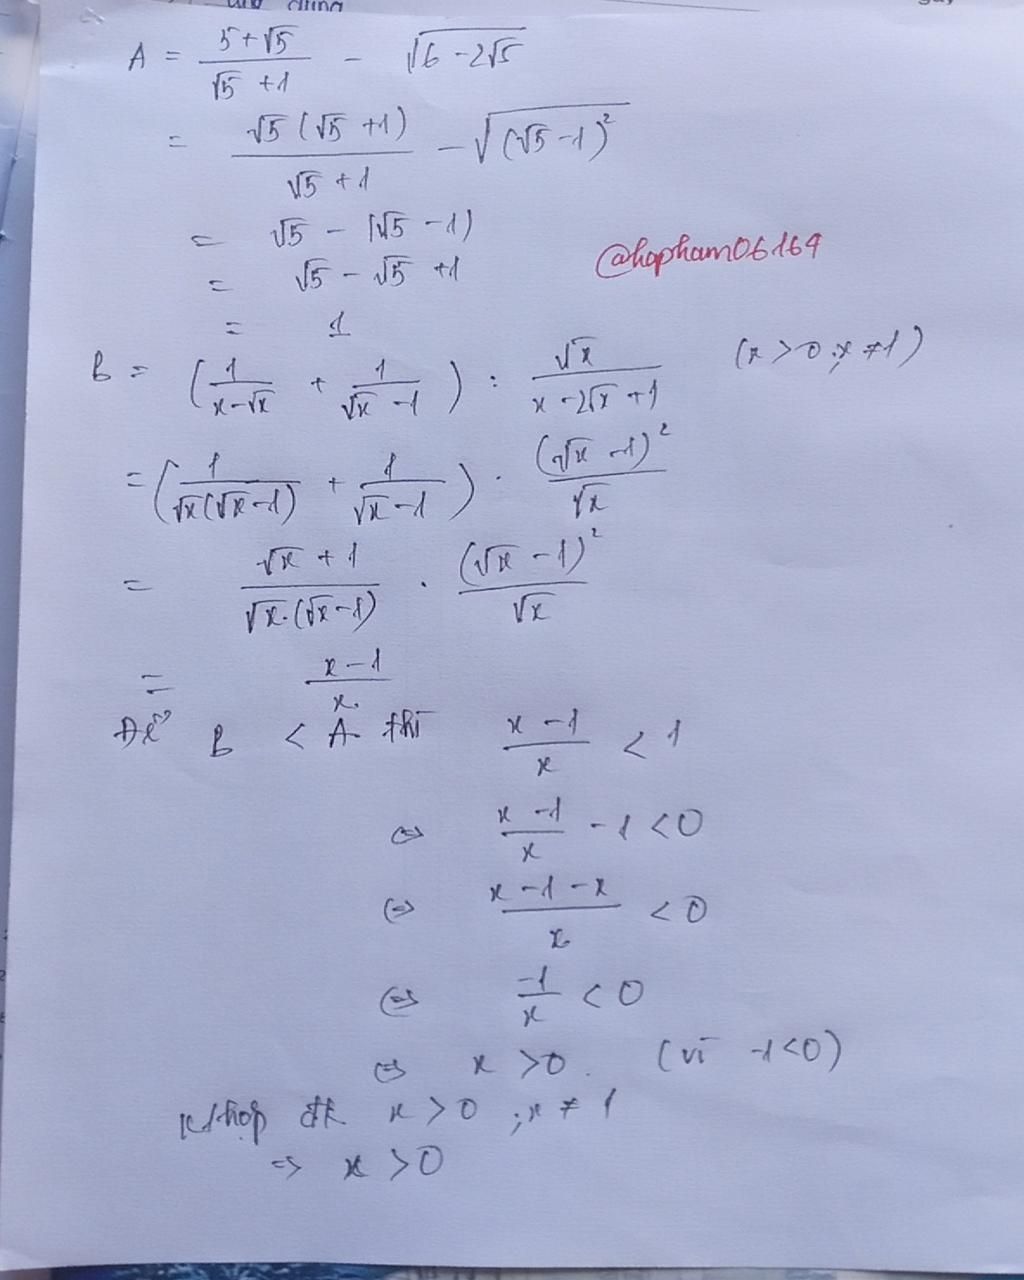 A = (5+√5)/(√5+1) - √(6-2√5)
= √5(√5+1)/(√5+1) - √((√5-1)²)
= √5 - (√5-1)
= √5 - √5 +1
= 1
@hopham06164
B = (1/(x-√x) + 1/(√x-1)) : √x/(x-2√x+1) (x>0;x≠1)
= (1/(√x(√x-1)) + 1/(√x-1)) . (√x-1)²/√x
= (√x+1)/(√x.(√x-1)) . (√x-1)²/√x
= (x-1)/x
Để B < A thì (x-1)/x < 1
⇔ (x-1)/x - 1 < 0
⇔ (x-1-x)/x < 0
⇔ -1/x < 0
⇔ x > 0. (vì -1<0)
k/hợp đk x > 0 ; x ≠ 1
⇒ x > 0